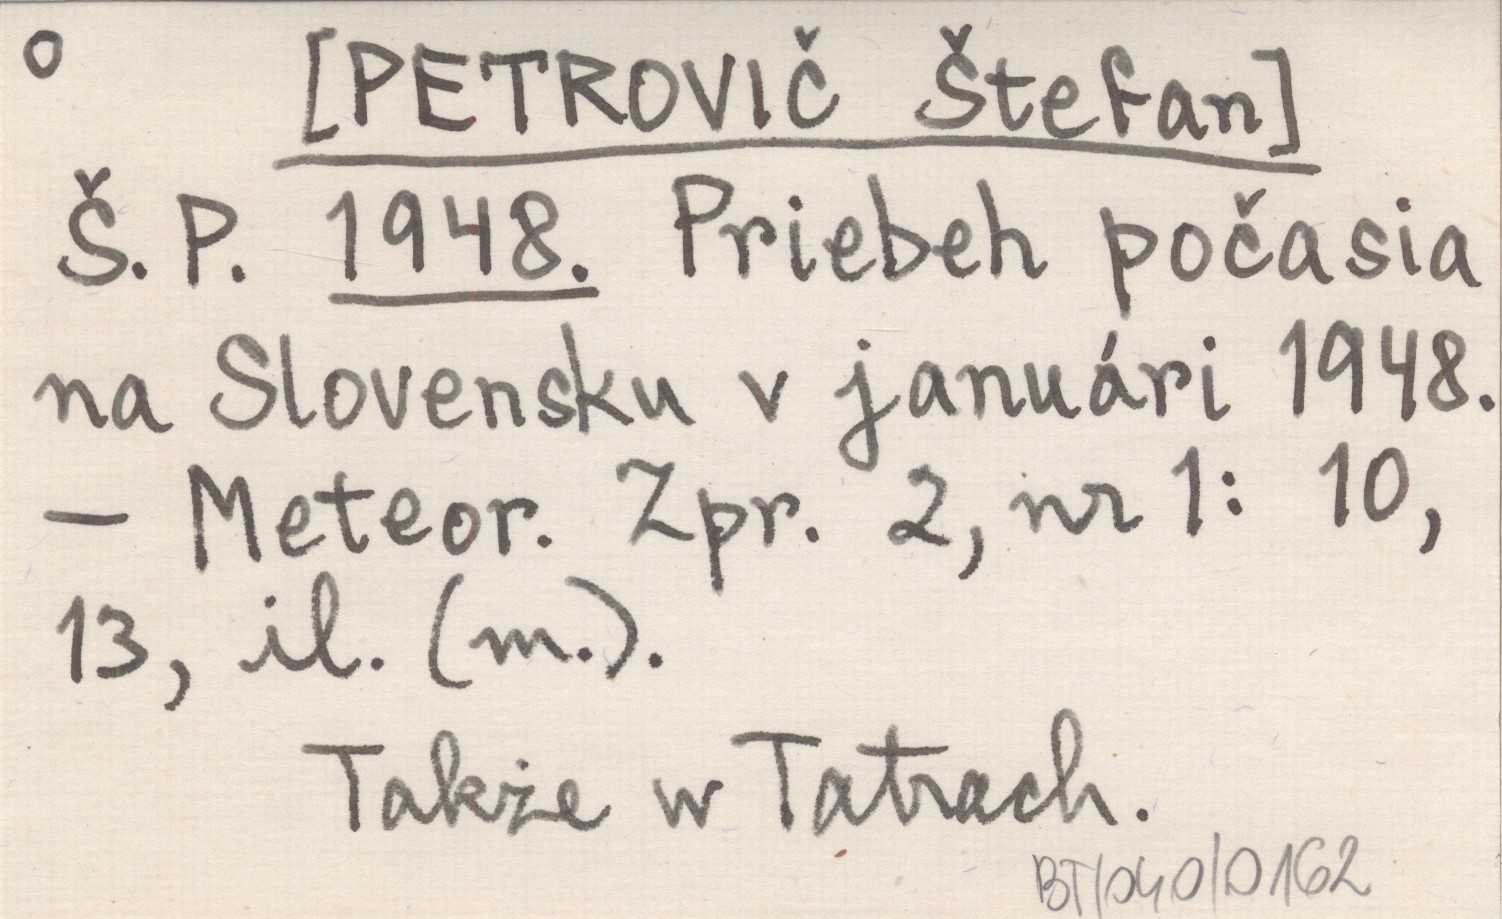 o [PETROVIČ Štefan]
Š. P. 1948. Priebeh počasia
na Slovensku v januári 1948.
— Meteor. Zpr. 2, nr 1: 10,
13, il. (m.).
Także w Tatrach.
BT/040/0162